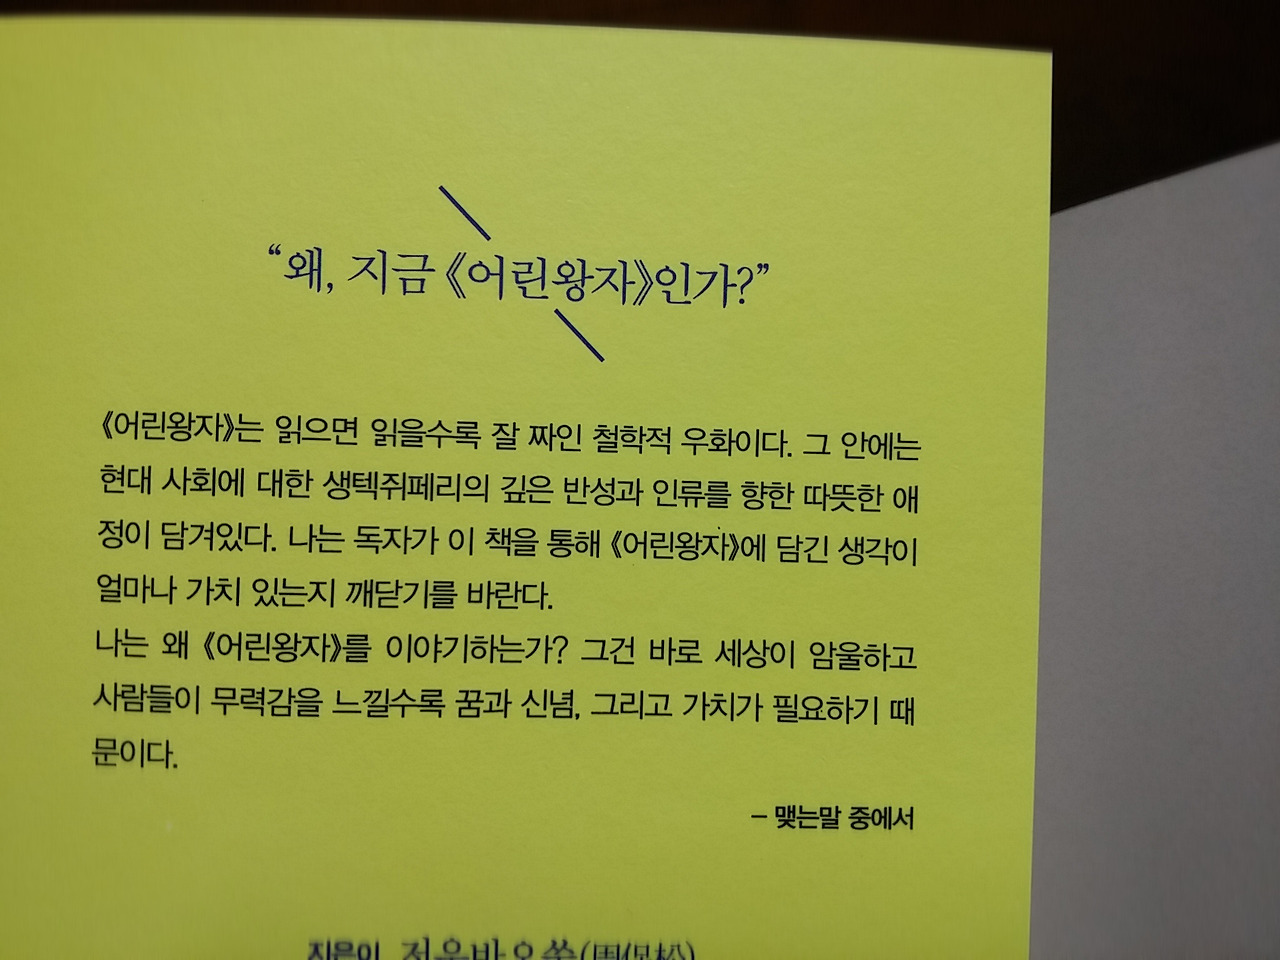 “왜, 지금 《어린왕자》인가?”
《어린왕자》는 읽으면 읽을수록 잘 짜인 철학적 우화이다. 그 안에는
현대 사회에 대한 생텍쥐페리의 깊은 반성과 인류를 향한 따뜻한 애
정이 담겨있다. 나는 독자가 이 책을 통해 《어린왕자》에 담긴 생각이
얼마나 가치 있는지 깨닫기를 바란다.
나는 왜 《어린왕자》를 이야기하는가? 그건 바로 세상이 암울하고
사람들이 무력감을 느낄수록 꿈과 신념, 그리고 가치가 필요하기 때
문이다.
– 맺는말 중에서
지은이